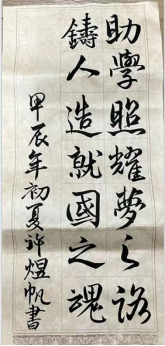 助學照耀夢之路
鑄人造就國之魂
甲辰年初夏許煜帆書